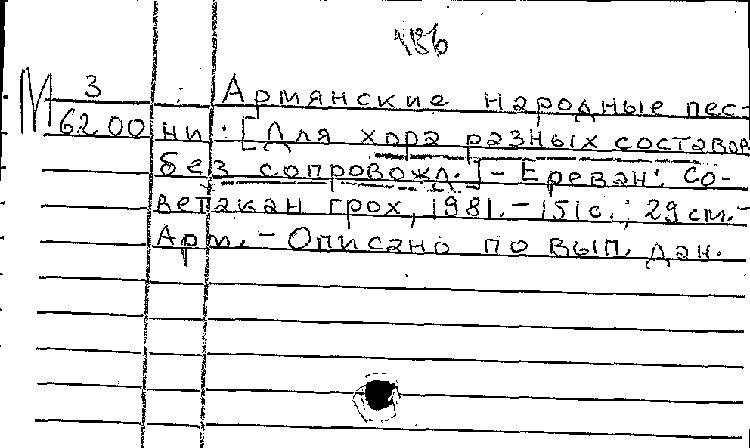 186
М 3 Армянские народные пес-
6200 ни: [Для хора разных составов
без сопровожд.] - Ереван: Со-
ветакан грох, 1981. - 151 с.; 29 см. -
Арм. - Описано по вып. дан.